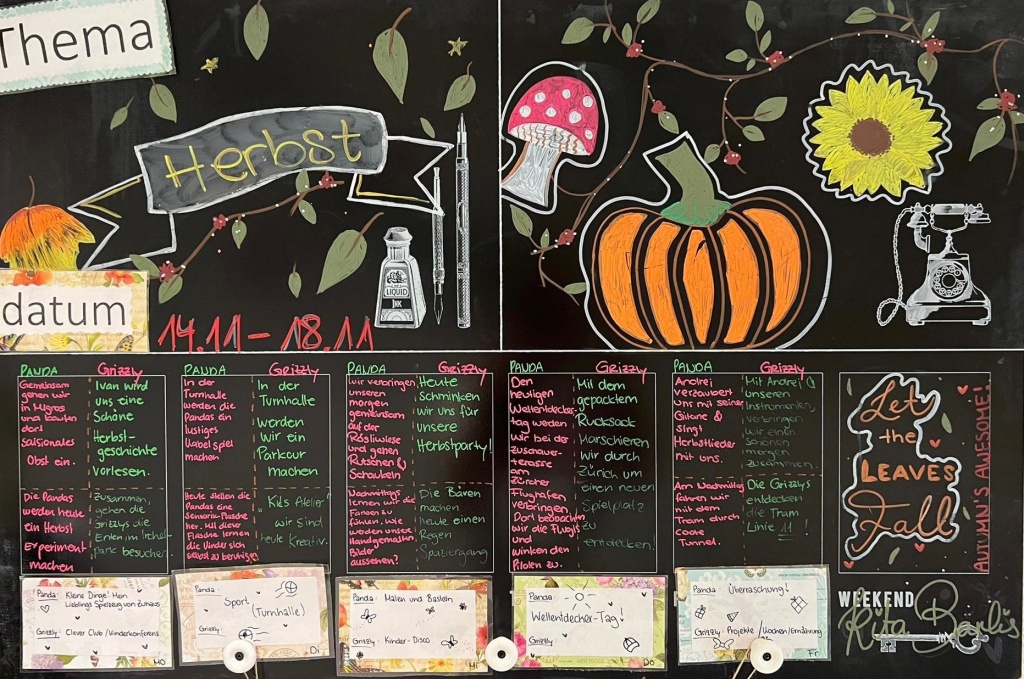 Thema
Herbst
LIQUID
INK
datum
14.11 - 18.11
PANDA Grizzly
Gemeinsam
gehen wir
in Migros
und kaufen
dort
saisonales
Obst ein.
Ivan wird
uns eine
Schöne
Herbst-
geschichte
vorlesen.
Die Pandas
werden heute
ein Herbst
Experiment
machen
Zusammen,
gehen die
Grizzlys die
Enten im Irchel
Park besuchen.
PANDA Grizzly
In der
Turnhalle
werden die
Pandas ein
lustiges
spiel
machen
In der
Turnhalle
werden
Wir ein
Parkour
machen
Heute stellen die
Pandas eine
Sensorik-Flasche
her. Mit dieser
Flasche lernen
die Kinder sich
selbst zu beruhigen
"Kids Atelier"
wir sind
heute Kreativ.
PANDA Grizzly
Wir verbringen
unseren
morgen
gemeinsam
auf der
Rösliwiese
und gehen
Rutschen &
Schaukeln
Heute
Schminken
wir uns für
unsere
Herbstparty!
Nachmittags
lernen wir die
Farben zu
fühlen. Wie
werden unsere
Handgemalten
Bilder
aussehen?
Die Bären
machen
heute einen
Regen
Spaziergang
PANDA Grizzly
Den
heutigen
Weltentdecker-
tag werden
wir bei der
zuschauer-
terasse
am
Zürcher
Flughafen
verbringen.
Dort beobachten
wir die Flugis
und
winken den
Piloten zu.
Mit dem
gepacktem
Rucksack
Marschieren
wir durch
Zürich um
einen neuen
Spielplatz
zu
entdecken.
PANDA Grizzly
Andrei
verzaubert
uns mit seiner
Gitarre &
singt
Herbstlieder
mit uns.
Mit Andrei &
unseren
Instrumenten,
verbringen
wir einen
schönen
morgen
zusammen
Am Nachmittag
fahren wir
mit dem
Tram durch
coole
Tunnel.
Die Grizzlys
entdecken
die Tram
Linie 11!
Let
the
LEAVES
Fall
AUTUMN'S AWESOME!
Panda: Kleine Dinge! Mein
Lieblings Spielzeug von zuhaus
Grizzly: Clever Club / Kinderkonferenz
Mo
Panda:
Sport
(Turnhalle)
Grizzly:
Di
Panda: Malen und Basteln
Grizzly: Kinder-Disco
Mi
Panda:
Weltentdecher-Tag!
Grizzly:
Do
Panda: Überraschung!
Grizzly: Projekte / Kochen/Ernährung
Fr
WEEKEND